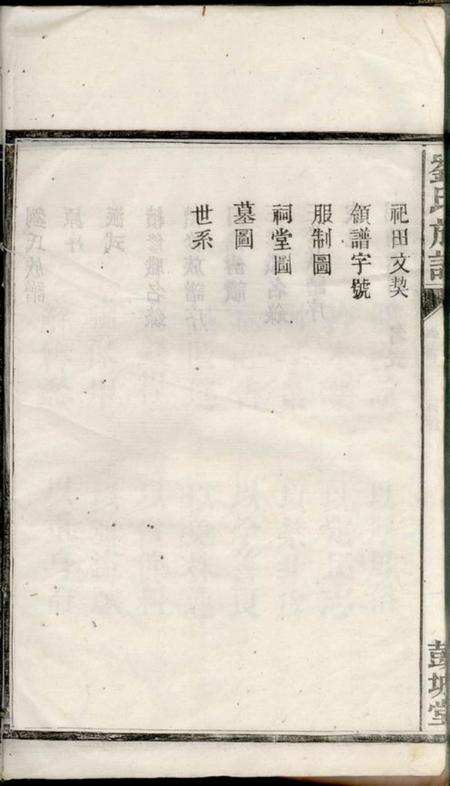 祀田文契
領譜字號
服制圖
祠堂圖
墓圖
世系
劉氏族譜
彭城堂